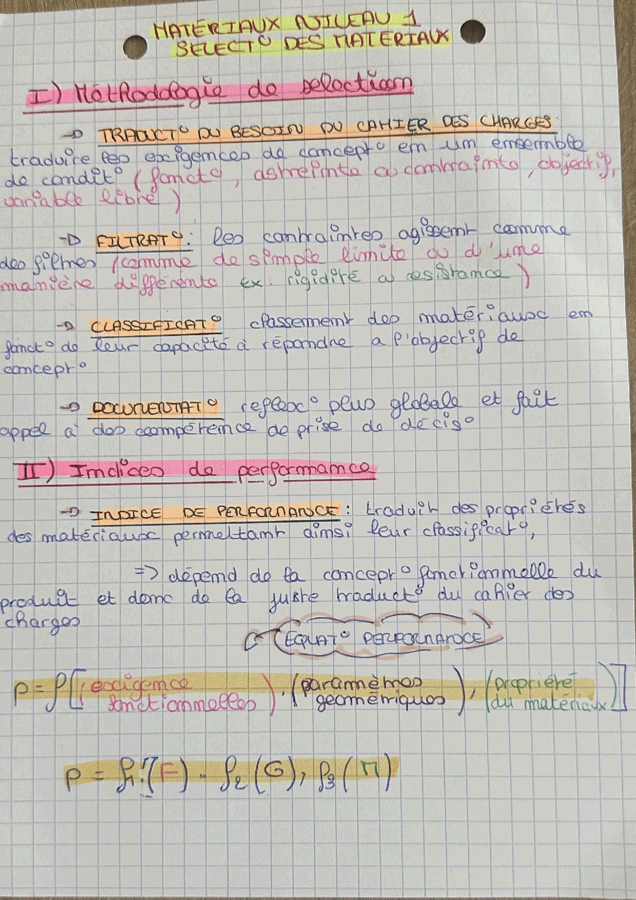 MATÉRIAUX NIVEAU 1
SELECT° DES MATERIAUX
I) Méthodologie de selection
→ TRADUCT° DU BESOIN DU CAHIER DES CHARGES:
traduire les exigences de concept° en un ensemble
de condit° (fonct°, astreinte ou contrainte, objectif,
variable libre)
→ FILTRAT°: les contraintes agissent comme
des filtres (comme de simple limite ou d'une
manière différente ex: rigidité et resistance)
→ CLASSIFICAT° classement des matériaux en
fonct° de leur capacité à répondre a l'objectif de
concept°
→ DOCUMENTAT° reflex° plus globale et fait
appel à des compétence de prise de décis°
II) Indices de performance
→ INDICE DE PERFORMANCE: traduit des propriétés
des matériaux permettant ainsi leur classificat°,
=> dépend de la concept° fonctionnelle du
produit et donc de la juste traduct° du cahier des
charges
EQUAT° PERFORMANCE
P = f[(exigence fonctionnelles).(paramètres geométriques),(propriété du matériaux)]
P = f1(F) . f2(G), f3(M)